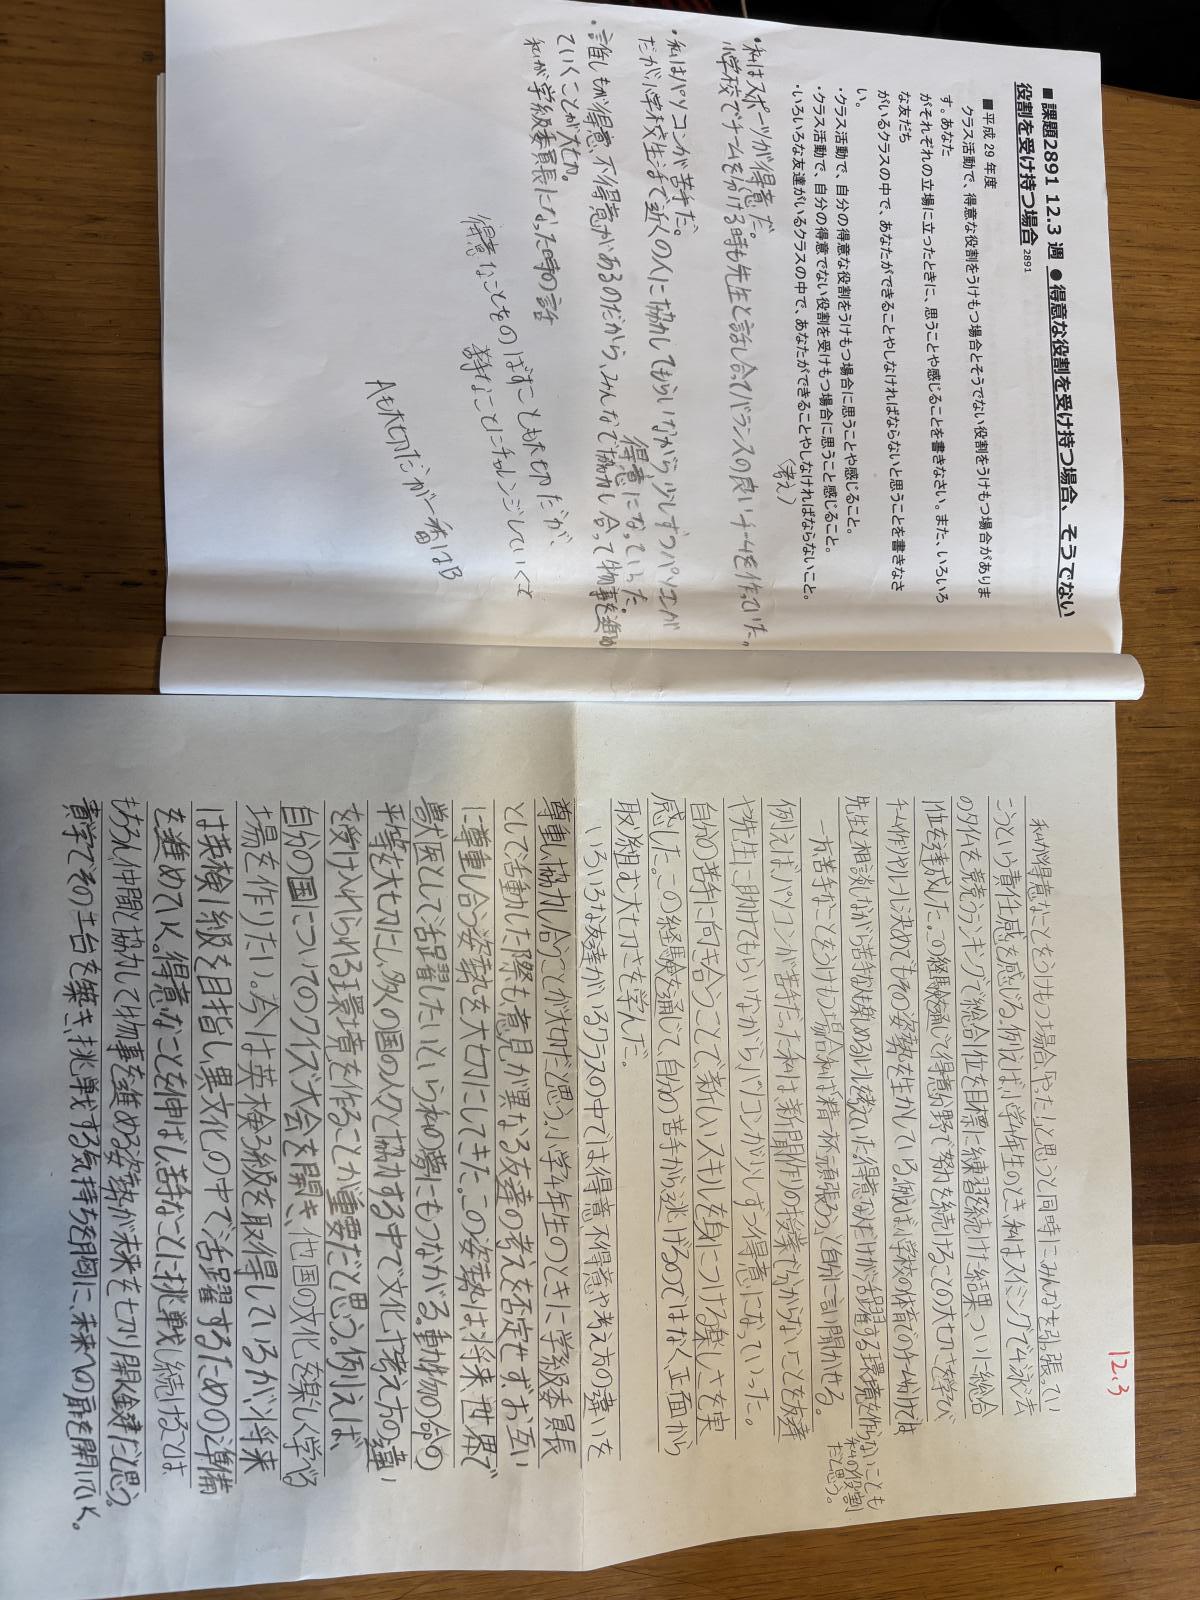 ■課題2891 12.3 週 ●得意な役割を受け持つ場合、そうでない
役割を受け持つ場合 2891
■平成 29 年度
クラス活動で、得意な役割をうけもつ場合とそうでない役割をうけもつ場合がありま
す。あなた
がそれぞれの立場に立ったときに、思うことや感じることを書きなさい。また、いろいろ
な友だち
がいるクラスの中で、あなたができることやしなければならないと思うことを書きなさ
い。
・クラス活動で、自分の得意な役割をうけもつ場合に思うことや感じること。
・クラス活動で、自分の得意でない役割を受けもつ場合に思うこと感じること。
・いろいろな友達がいるクラスの中で、あなたができることやしなければならないこと。
(考え)
・私はスポーツが得意だ。
小学校でチームを分ける時も先生と話し合ってバランスの良いチームを作っていた。
・私はパソコンが苦手だ。
だが小学校生活で近くの人に協力してもらいながら、少しずつパソコンが
得意になっていった。
・誰しもが得意、不得意があるのだから、みんなで協力し合って物事を進め
ていくことが大切。
私が学級委員長になった時の話
得意なことをのばすことも大切だが、
苦手なことにチャレンジしていくこと
Aも大切だが一番はB
12.3
私が得意なことをうけもつ場合、「やった!」と思うと同時に、みんなを引っ張ってい
こうという責任感を感じる。例えば、小学4年生のとき、私はスイミングで4泳法
のタイムを競うランキングで総合1位を目標に練習を続けた結果、ついに総合
1位を達成した。この経験を通じて得意分野で努力を続けることの大切さを学び
チーム作りやルール決めでもその姿勢を生かしている。例えば、小学校の体育でのチーム分けでは、
先生と相談しながら苦手な人も楽しめるルールを考えていた。得意な人だけが活躍する環境を作らないことも
私の役割
だと思う。
一方、苦手なことをうけもつ場合、私は「精一杯頑張ろう」と自分に言い聞かせる。
例えば、パソコンが苦手だった私は、新聞作りの授業で分からないことを友達
や先生に助けてもらいながら、パソコンが少しずつ得意になっていった。
自分の苦手に向き合うことで、新しいスキルを身につける楽しさを実
感した。この経験を通じて、自分の苦手から逃げるのではなく、正面から
取り組む大切さを学んだ。
いろいろな友達がいるクラスの中では、得意・不得意や考え方の違いを
尊重し、協力し合うことが大切だと思う。小学4年生のときに学級委員長
として活動した際も、意見が異なる友達の考えを否定せず、お互い
に尊重し合う姿勢を大切にしてきた。この姿勢は、将来、世界で
獣医として活躍したいという私の夢にもつながる。動物の命の
平等を大切にし、多くの国の人々と協力する中で、文化や考え方の違い
を受け入れられる環境を作ることが重要だと思う。例えば、
自分の国についてのクイズ大会を開き、他国の文化を楽しく学べる
場を作りたい。今は英検3級を取得しているが、将来
は英検1級を目指し、異文化の中で活躍するための準備
を進めていく。得意なことを伸ばし、苦手なことに挑戦し続けることは
もちろん、仲間と協力して物事を進める姿勢が未来を切り開く鍵だと思う。
真学でその土台を築き、挑戦する気持ちを胸に、未来への扉を開いていく。